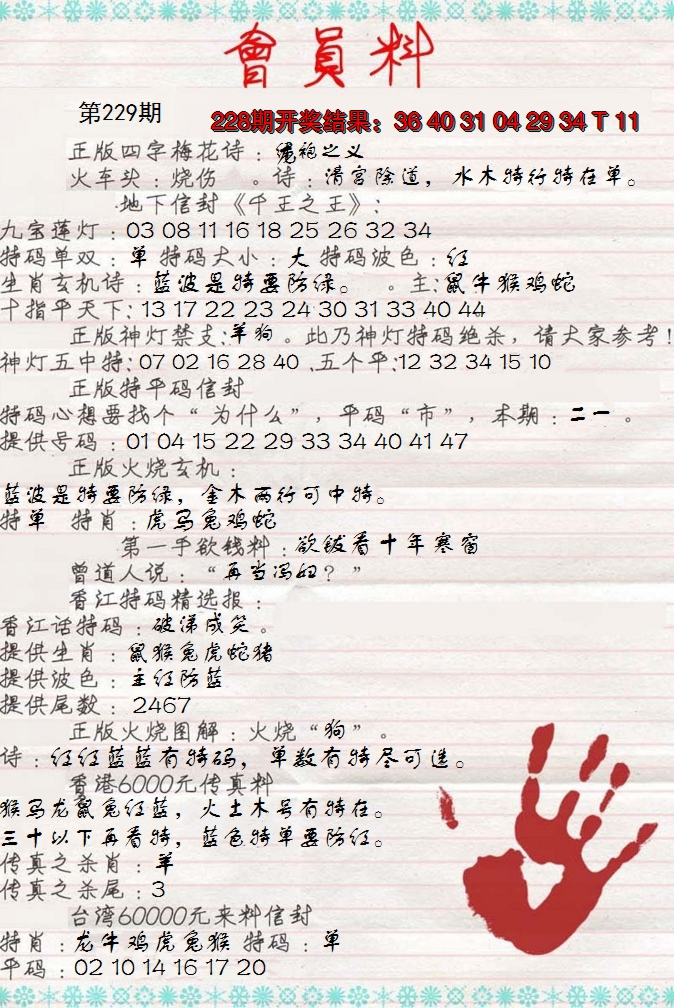 會員料
第229期
228期开奖结果：36 40 31 04 29 34 T 11
正版四字梅花诗：绳袍之义
火车头：烧伤 。诗：清宫除道，水木特行特在单。
地下信封《千王之王》：
九宝莲灯：03 08 11 16 18 25 26 32 34
特码单双：单 特码大小：大 特码波色：红
生肖玄机诗：蓝波是特要防绿。 。主：鼠牛猴鸡蛇
十指平天下：13 17 22 23 24 30 31 33 40 44
正版神灯禁支：羊狗 。此乃神灯特码绝杀，请大家参考！
神灯五中特：07 02 16 28 40 .五个平：12 32 34 15 10
正版特平码信封
特码心想要找个“为什么”，平码“市”，本期：二一 。
提供号码：01 04 15 22 29 33 34 40 41 47
正版火烧玄机：
蓝波是特要防绿，金木两行可中特。
特单 特肖：虎马兔鸡蛇
第一手欲钱料：欲钱看十年寒窗
曾道人说：“再当冯妇？”
香江特码精选报：
香江话特码：破涕成笑。
提供生肖：鼠猴兔虎蛇猪
提供波色：主红防蓝
提供尾数：2467
正版火烧图解：火烧“狗”。
诗：红红蓝蓝有特码，单数有特尽可选。
香港6000元传真料
猴马龙鼠兔红蓝，火土木号有特在。
三十以下再看特，蓝色特单要防红。
传真之杀肖：羊
传真之杀尾：3
台湾60000元来料信封
特肖：龙牛鸡虎兔猴 特码：单
平码：02 10 14 16 17 20